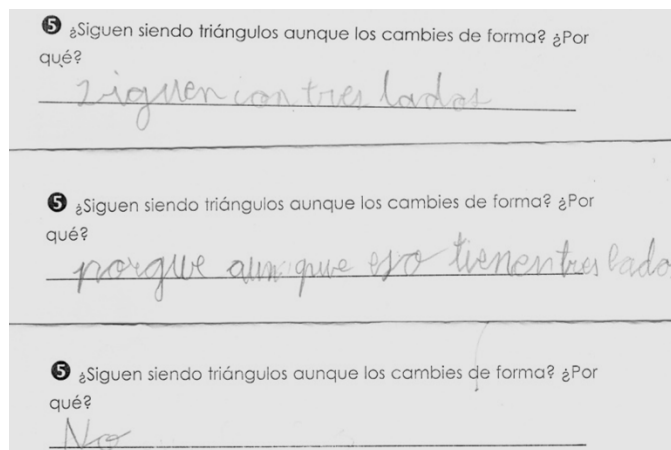 ❺ ¿Siguen siendo triángulos aunque los cambies de forma? ¿Por
qué?
siguen con tres lados
❺ ¿Siguen siendo triángulos aunque los cambies de forma? ¿Por
qué?
porque aunque eso tienen tres lado
❺ ¿Siguen siendo triángulos aunque los cambies de forma? ¿Por
qué?
No